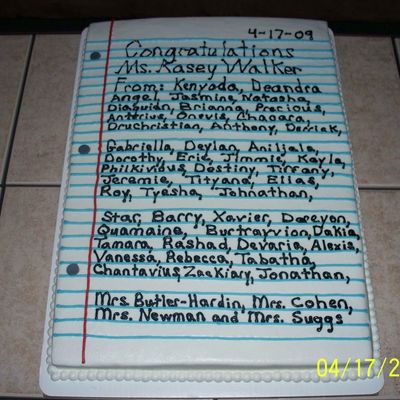 4-17-09
Congratulations
Ms. Kasey Walker
From: Kenyada, Deandra
Angel, Jasmine, Natasha,
Brianna, Precious,
Onevis, Chacara,
Druchristian, Anthony, Derrick,
Gabriella, Deylan,
Dorothy, Eric, Jimmie, Kayla,
Destiny, Tiffany,
Jeremie, Tityana, Elias,
Roy, Tyesha, Johnathan,
Star, Barry, Xavier, Dareyon,
Quamaine, Burtrayvion, Dakia,
Tamara, Rashad, Devaria, Alexis,
Vanessa, Rebecca, Tabatha,
Chantavius, Zackiary, Jonathan,
Mrs. Butler-Hardin, Mrs. Cohen,
Mrs. Newman and Mrs. Suggs
04/17/2